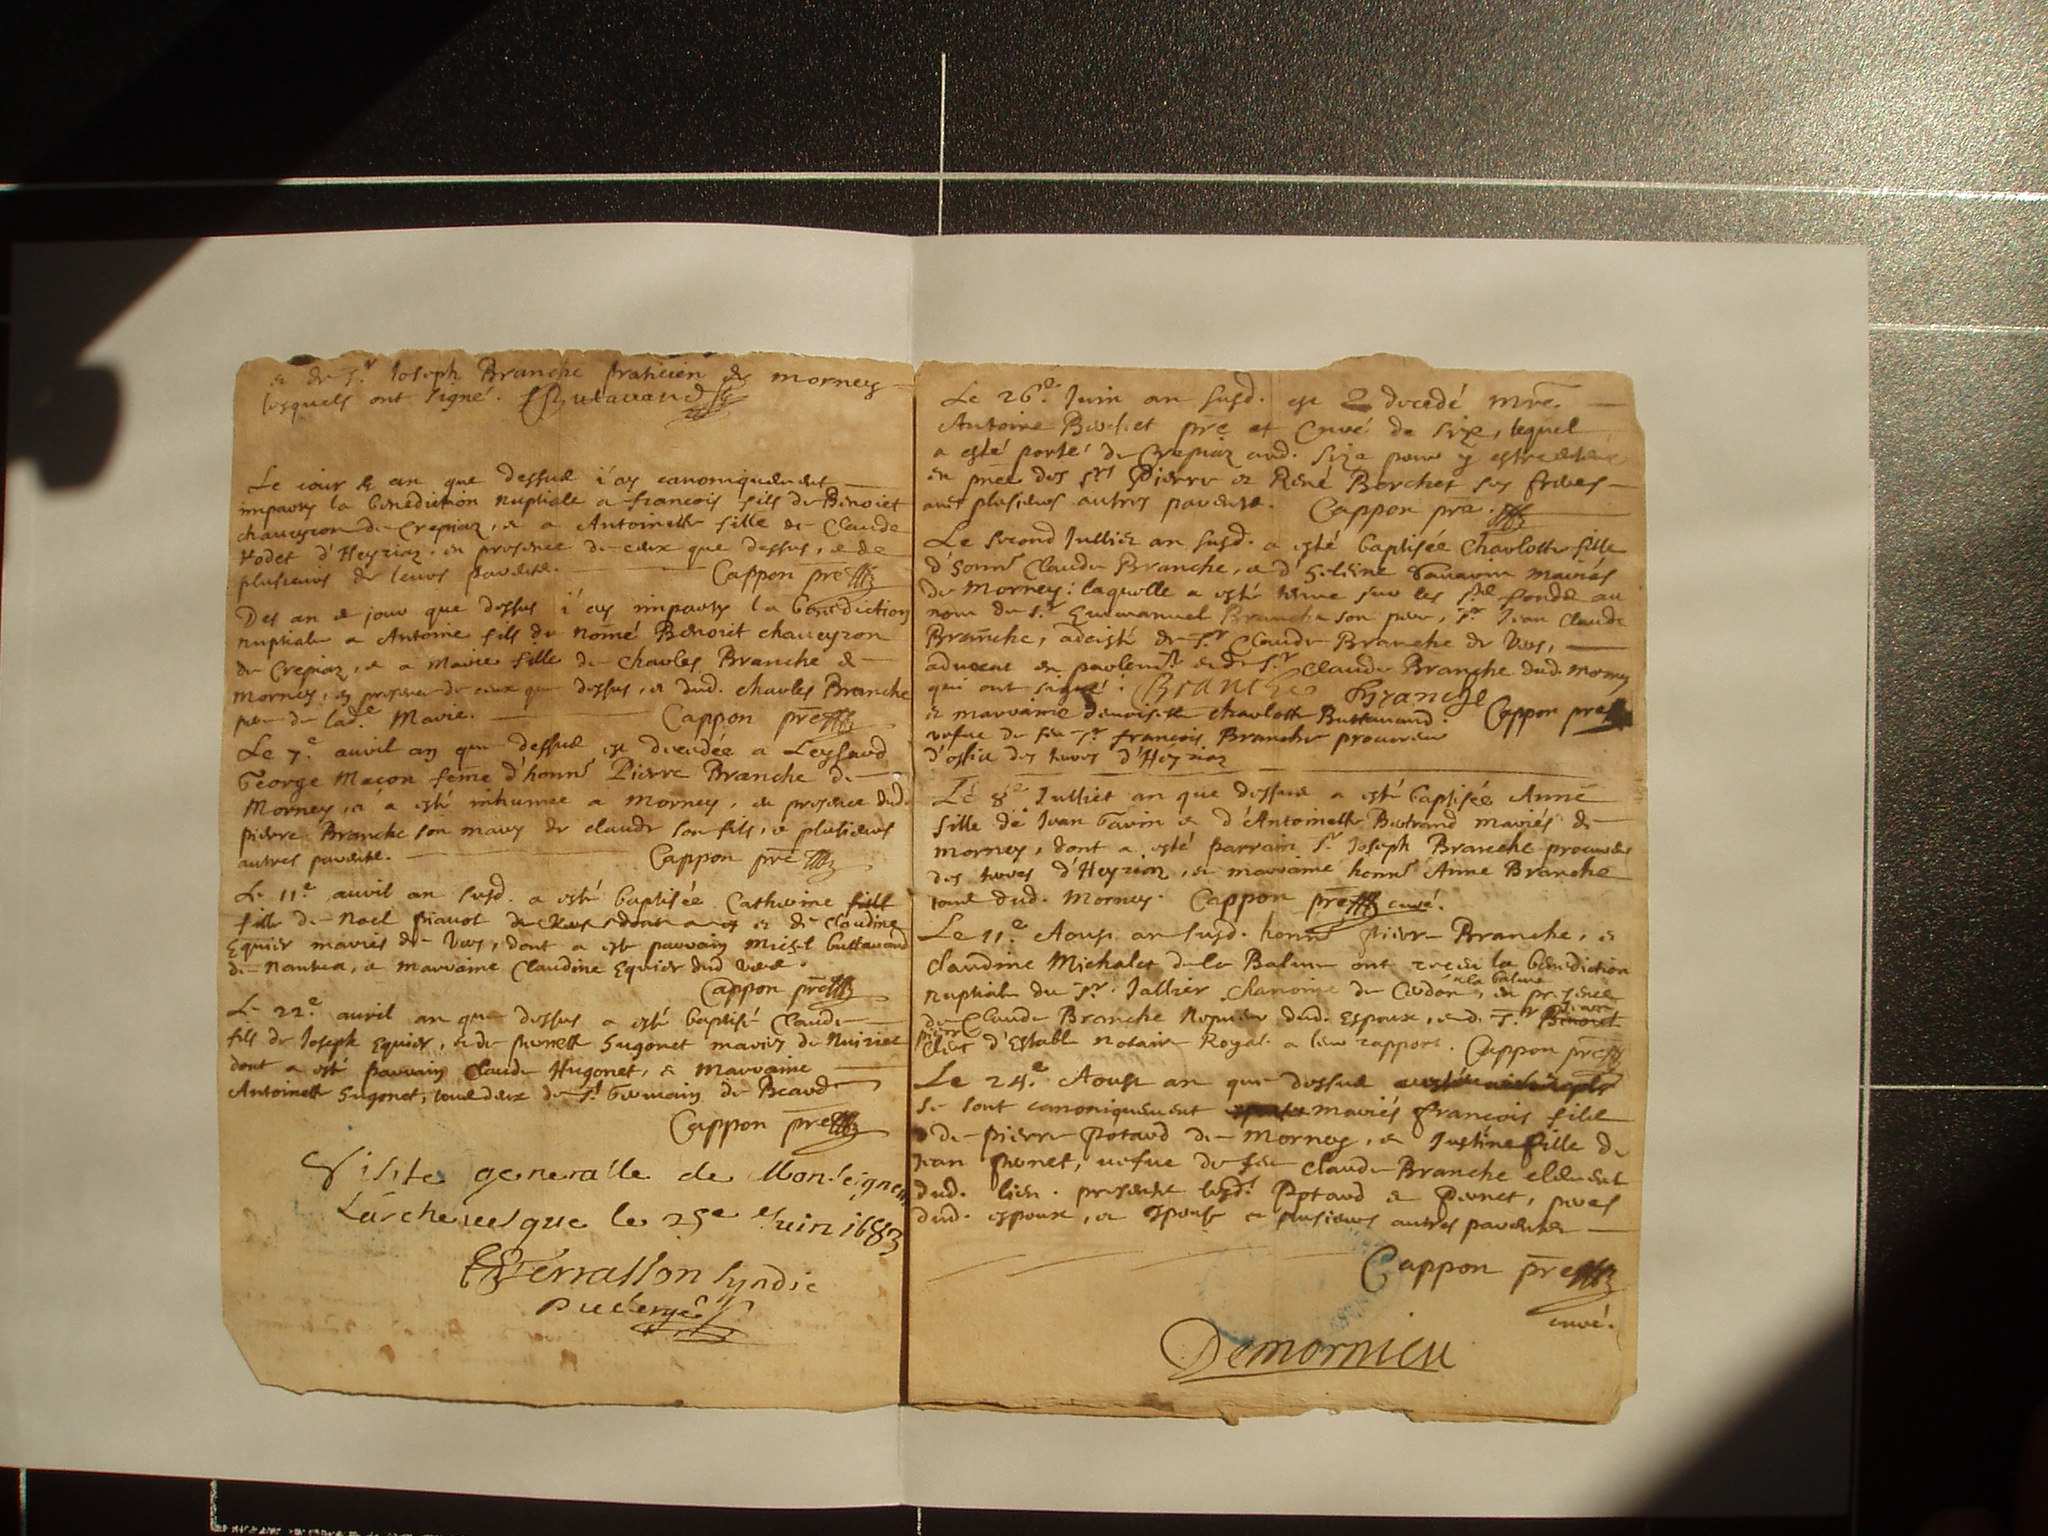 et de Sr Joseph Branche praticien de Morney
lesquels ont signé.
Le iour & an que dessus i'ay canoniquement
imparty la benediction nuptiale a françois fils de Benoict
chaueyron de Crepiaz, et a Antoinette fille de Claude
Hodet d'Heyriaz. en presence de ceux que dessus, et de
plusieurs de leurs parents. Cappon pre
Des an et jour que dessus i'ay imparty la benediction
nuptiale a Antoine fils du nomé Benoict chaueyron
de Crepiaz, et a Marie fille de Charles Branche de
Morney, en presence de ceux que dessus, et dud. charles Branche
pere de lad.e Marie. Cappon pre
Le 7.e auril an que dessus est decedée a Leyssard
George Maçon feme d'honn. Pierre Branche de
Morney, et a esté inhumée a Morney, en presence dud.
pierre Branche son mary de claude son fils, et plusieurs
autres parents. Cappon pre
Le 11.e auril an susd. a esté baptisée Catherine fille
fille de Noel piauot et de Claudine
Equier mariés de Vers, dont a esté parrain Michel buttauand
de Nantua, et marraine Claudine Equier dud Vers.
Cappon pre
Le 22.e auril an que dessus a esté baptisé Claude
fils de Joseph Equier, et de pernette hugonet mariés de
dont a esté parrain Claude Hugonet, et Marraine
Antoinette hugonet, tous deux de St Germain de Beard
Cappon pre
Visite generalle de Monseigneur
Larcheuesque le 25e Juin 1683
Terrasson Syndic
du clergé
Le 26.e Juin an susd. est decedé mre.
Antoine Berchet pre et Curé de size, lequel
a esté porté de Crepiaz aud. size pour y estre enterré
en pnce des srs Pierre et René Berchet ses freres
auec plusieurs autres parents. Cappon pre.
Le second Julliet an susd. a esté baptisée Charlotte fille
d'honn. Claude Branche, et d' mariés
de Morney: laquelle a esté tenue sur les sts fonds au
nom du Sr Emmanuel Branche son pere, Sr Jean Claude
Branche, assisté de Sr Claude Branche de Vers,
aduocat en parlemt. et de Sr Claude Branche dud. Morney
qui ont signé: Branche Branche
et marraine demoiselle charlotte Buttauand. Cappon pre
vefue de feu Sr françois Branche procureur
d'office des terres d'Heyriaz
Le 8e Julliet an que dessus a esté baptisée Anne
fille de Jean Gavin et d'Antoinette Bertrand mariés de
Morney, dont a esté parrain Sr Joseph Branche procureur
des terres d'Heyriaz, et marraine honn. Anne Branche
tous dud. Morney. Cappon pre curé.
Le 11.e Aoust an susd. honn. pierre Branche, et
Claudine Michalet de la Balme ont receu la benediction
nuptiale du Sr. Jallier chanoine de Cerdon, a la balme en presence
de Claude Branche Nepueu dud. Espoux, et d. Sr Benoict
Pierre d'Establ notaire Royal a leur rapport. Cappon pre
Le 24.e Aoust an que dessus
Se sont canoniquement mariés françois fils
de pierre Potard de Morney, et Justine fille de
Jean Pernet, vefue de feu Claude Branche
dud. lieu. presents lesd. Potard et Pernet, peres
dud. espoux, et espouse et plusieurs autres parents
Cappon pre
curé.
Demornieu